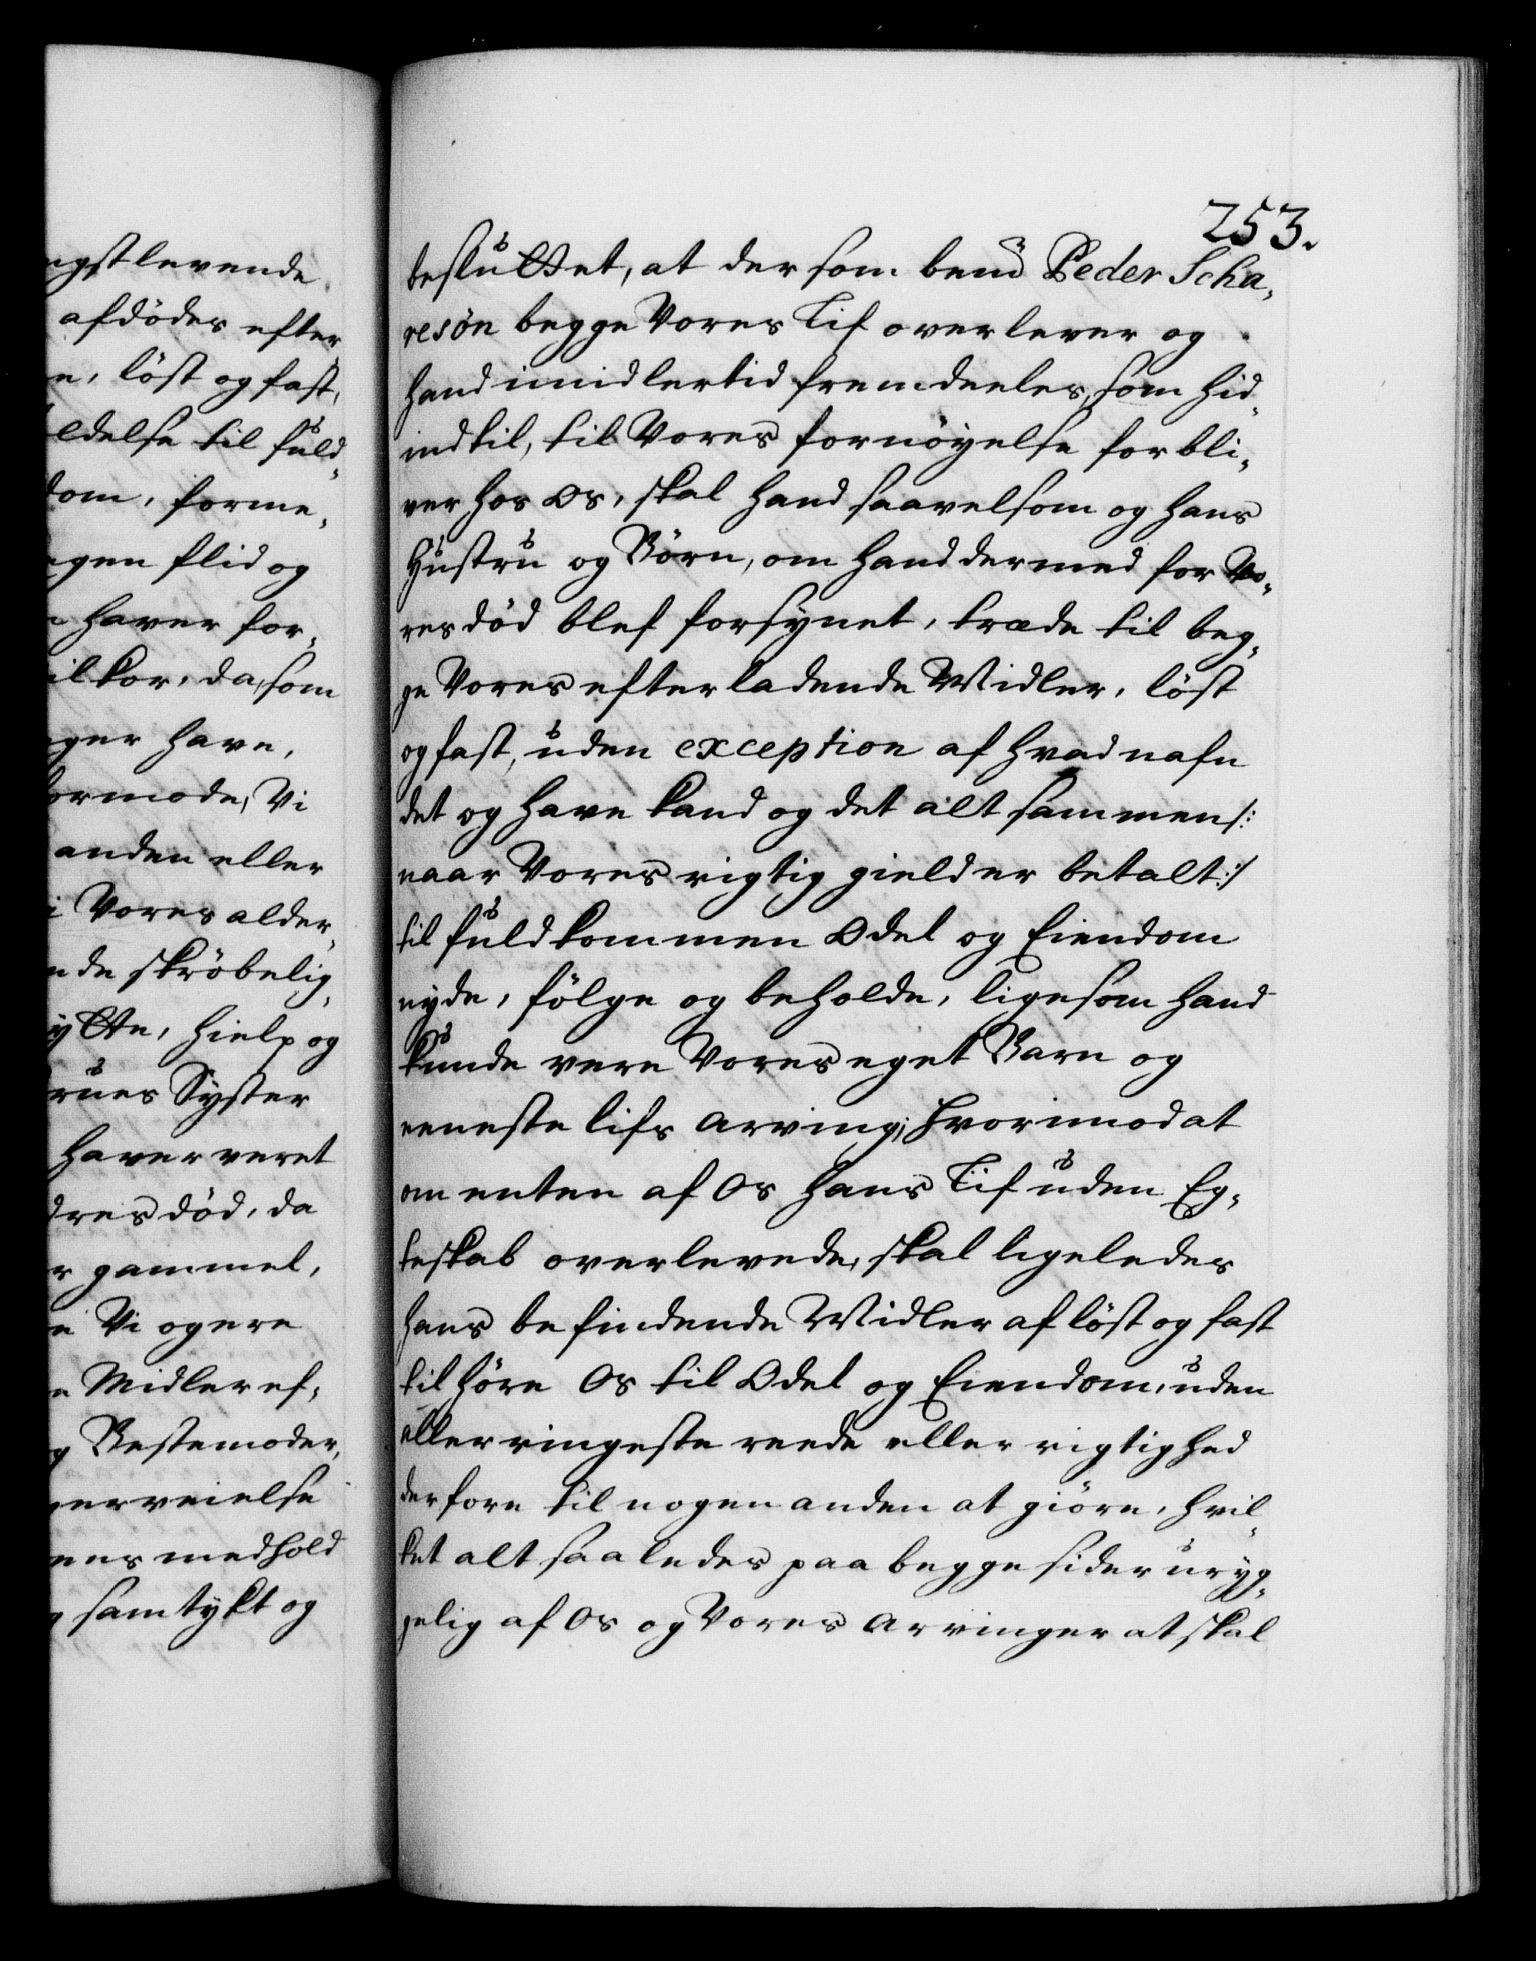 ngstlevende
afdödes efter
n, löst og fast,
eldelse til fuld-
dom, forme,
agen flid og
haver for,
ilkor, da, som
nger have,
formode, Vi
anden eller
i Vores alder,
nde skröbelig,
ytte, hielp og
rues Syster
haver veret
dres död, da
r gammel,
n Vi ogere
n Midler ef,
g Bestemoder,
erveielse
nes medhold
g samtykt og
253.
besluttet, at dersom bem̄ Peder Scha,
resøn begge Vores Lif overlever og
hand imidlertid fremdeeles, som hid,
indtil, til Vores fornöyelse forbli,
ver hos Os, skal hand saavelsom og hans
Hustru og Börn, om hand dermed for Vo,
res död blef forsynet, træde til beg,
ge Vores efterladende Midler, löst
og fast, uden exception af hvad nafn
det og have kand og det alt sammen /:
naar Vores rigtig gield er betalt :/
til fuldkommen Odel og Eiendom
nyde, fölge og beholde, ligesom hand
kunde vere Vores eget Barn og
eeneste lifs Arving; hvorimod at
om enten af Os hans Lif uden Eg,
teskab overlevede, skal ligeledes
hans befindende Midler af löst og fast
tilhöre Os til Odel og Eiendom, uden
allerringeste reede eller rigtighed
derfore til nogen anden at giöre, hvil,
ket alt saaledes paa begge sider uryg,
gelig af Os og Vores Arvinger at skal